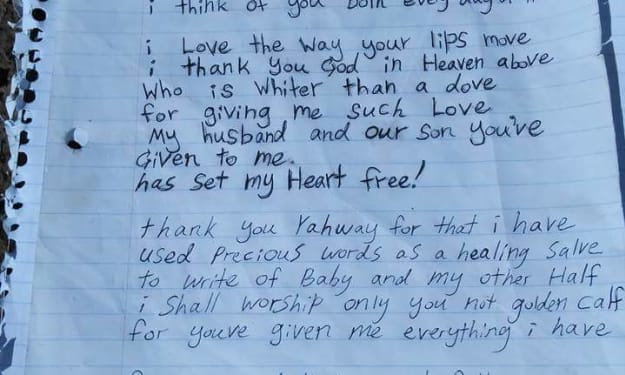 i think of you both every day
i Love the Way your lips move
i thank You God in Heaven above
Who is Whiter than a dove
for giving me such Love
My husband and our son you've
Given to me.
has set my Heart free!
thank you Yahway for that i have
used Precious words as a healing Salve
to write of Baby and my other Half
i Shall worship only you not golden Calf
for youve given me everything i have